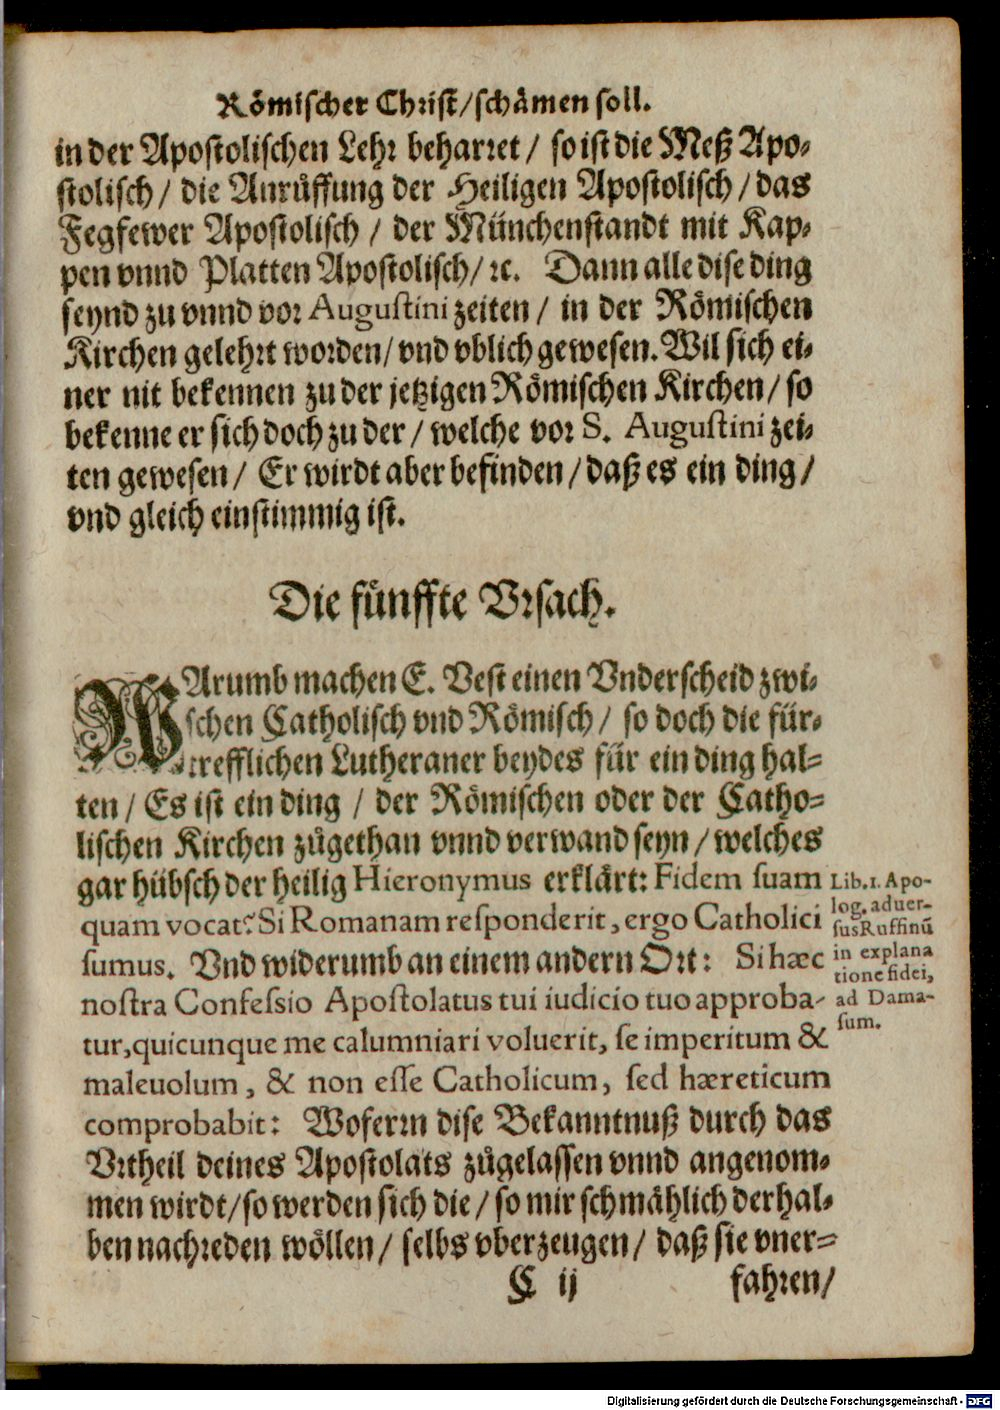 Römischer Christ/schämen soll.
in der Apostolischen Lehr beharret / so ist die Meß Apo-
stolisch / die Anrůffung der Heiligen Apostolisch / das
Fegfewer Apostolisch / der Münchenstandt mit Kap-
pen vnnd Platten Apostolisch / ꝛc. Dann alle dise ding
seynd zu vnnd vor Augustini zeiten / in der Römischen
Kirchen gelehrt worden / vnd vblich gewesen. Wil sich ei-
ner nit bekennen zu der jetzigen Römischen Kirchen / so
bekenne er sich doch zu der / welche vor S. Augustini zei-
ten gewesen / Er wirdt aber befinden / daß es ein ding /
vnd gleich einstimmig ist.
Die fünffte Vrsach.
WArumb machen E. Vest einen Vnderscheid zwi-
schen Catholisch vnd Römisch / so doch die für-
trefflichen Lutheraner beydes für ein ding hal-
ten / Es ist ein ding / der Römischen oder der Catho-
lischen Kirchen zůgethan vnnd verwand seyn / welches
gar hübsch der heilig Hieronymus erklärt: Fidem suam
quam vocat? Si Romanam responderit, ergo Catholici
sumus. Vnd widerumb an einem andern Ort: Si hæc
nostra Confessio Apostolatus tui iudicio tuo approba-
tur, quicunque me calumniari voluerit, se imperitum &
maleuolum, & non esse Catholicum, sed hæreticum
comprobabit: Woferrn dise Bekanntnuß durch das
Vrtheil deines Apostolats zůgelassen vnnd angenom-
men wirdt / so werden sich die / so mir schmählich derhal-
ben nachreden wöllen / selbs vberzeugen / daß sie vner-
C ij fahren /
Lib. 1. Apo-
log. aduer-
sus Ruffinū
in explana
tione fidei,
ad Dama-
sum.
Digitalisierung gefördert durch die Deutsche Forschungsgemeinschaft - DFG